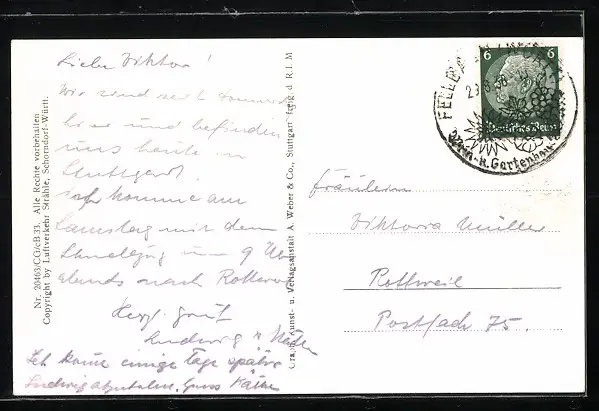 Lieber Viktor!
Wir sind seit
hier und befinden
uns heute in
Stuttgart.
Ich komme am
Samstag mit dem
um 9 Uhr
abends nach Rottweil
Herzl. Gruß
Ludwig
Ich komme einige Tage später
Ludwig abzuholen. Gruss Käthe
Nr. 20463/CG/cB 33. Alle Rechte vorbehalten
Copyright by Luftverkehr Strähle, Schorndorf-Württ.
Graph. Kunst- u. Verlagsanstalt A. Weber & Co., Stuttgart frgig d R L M
6 6
Deutsches Reich
FELLBACH
23.8.38
Wein- u. Gartenbau
Fräulein
Viktoria Müller
Rottweil
Postfach 75.